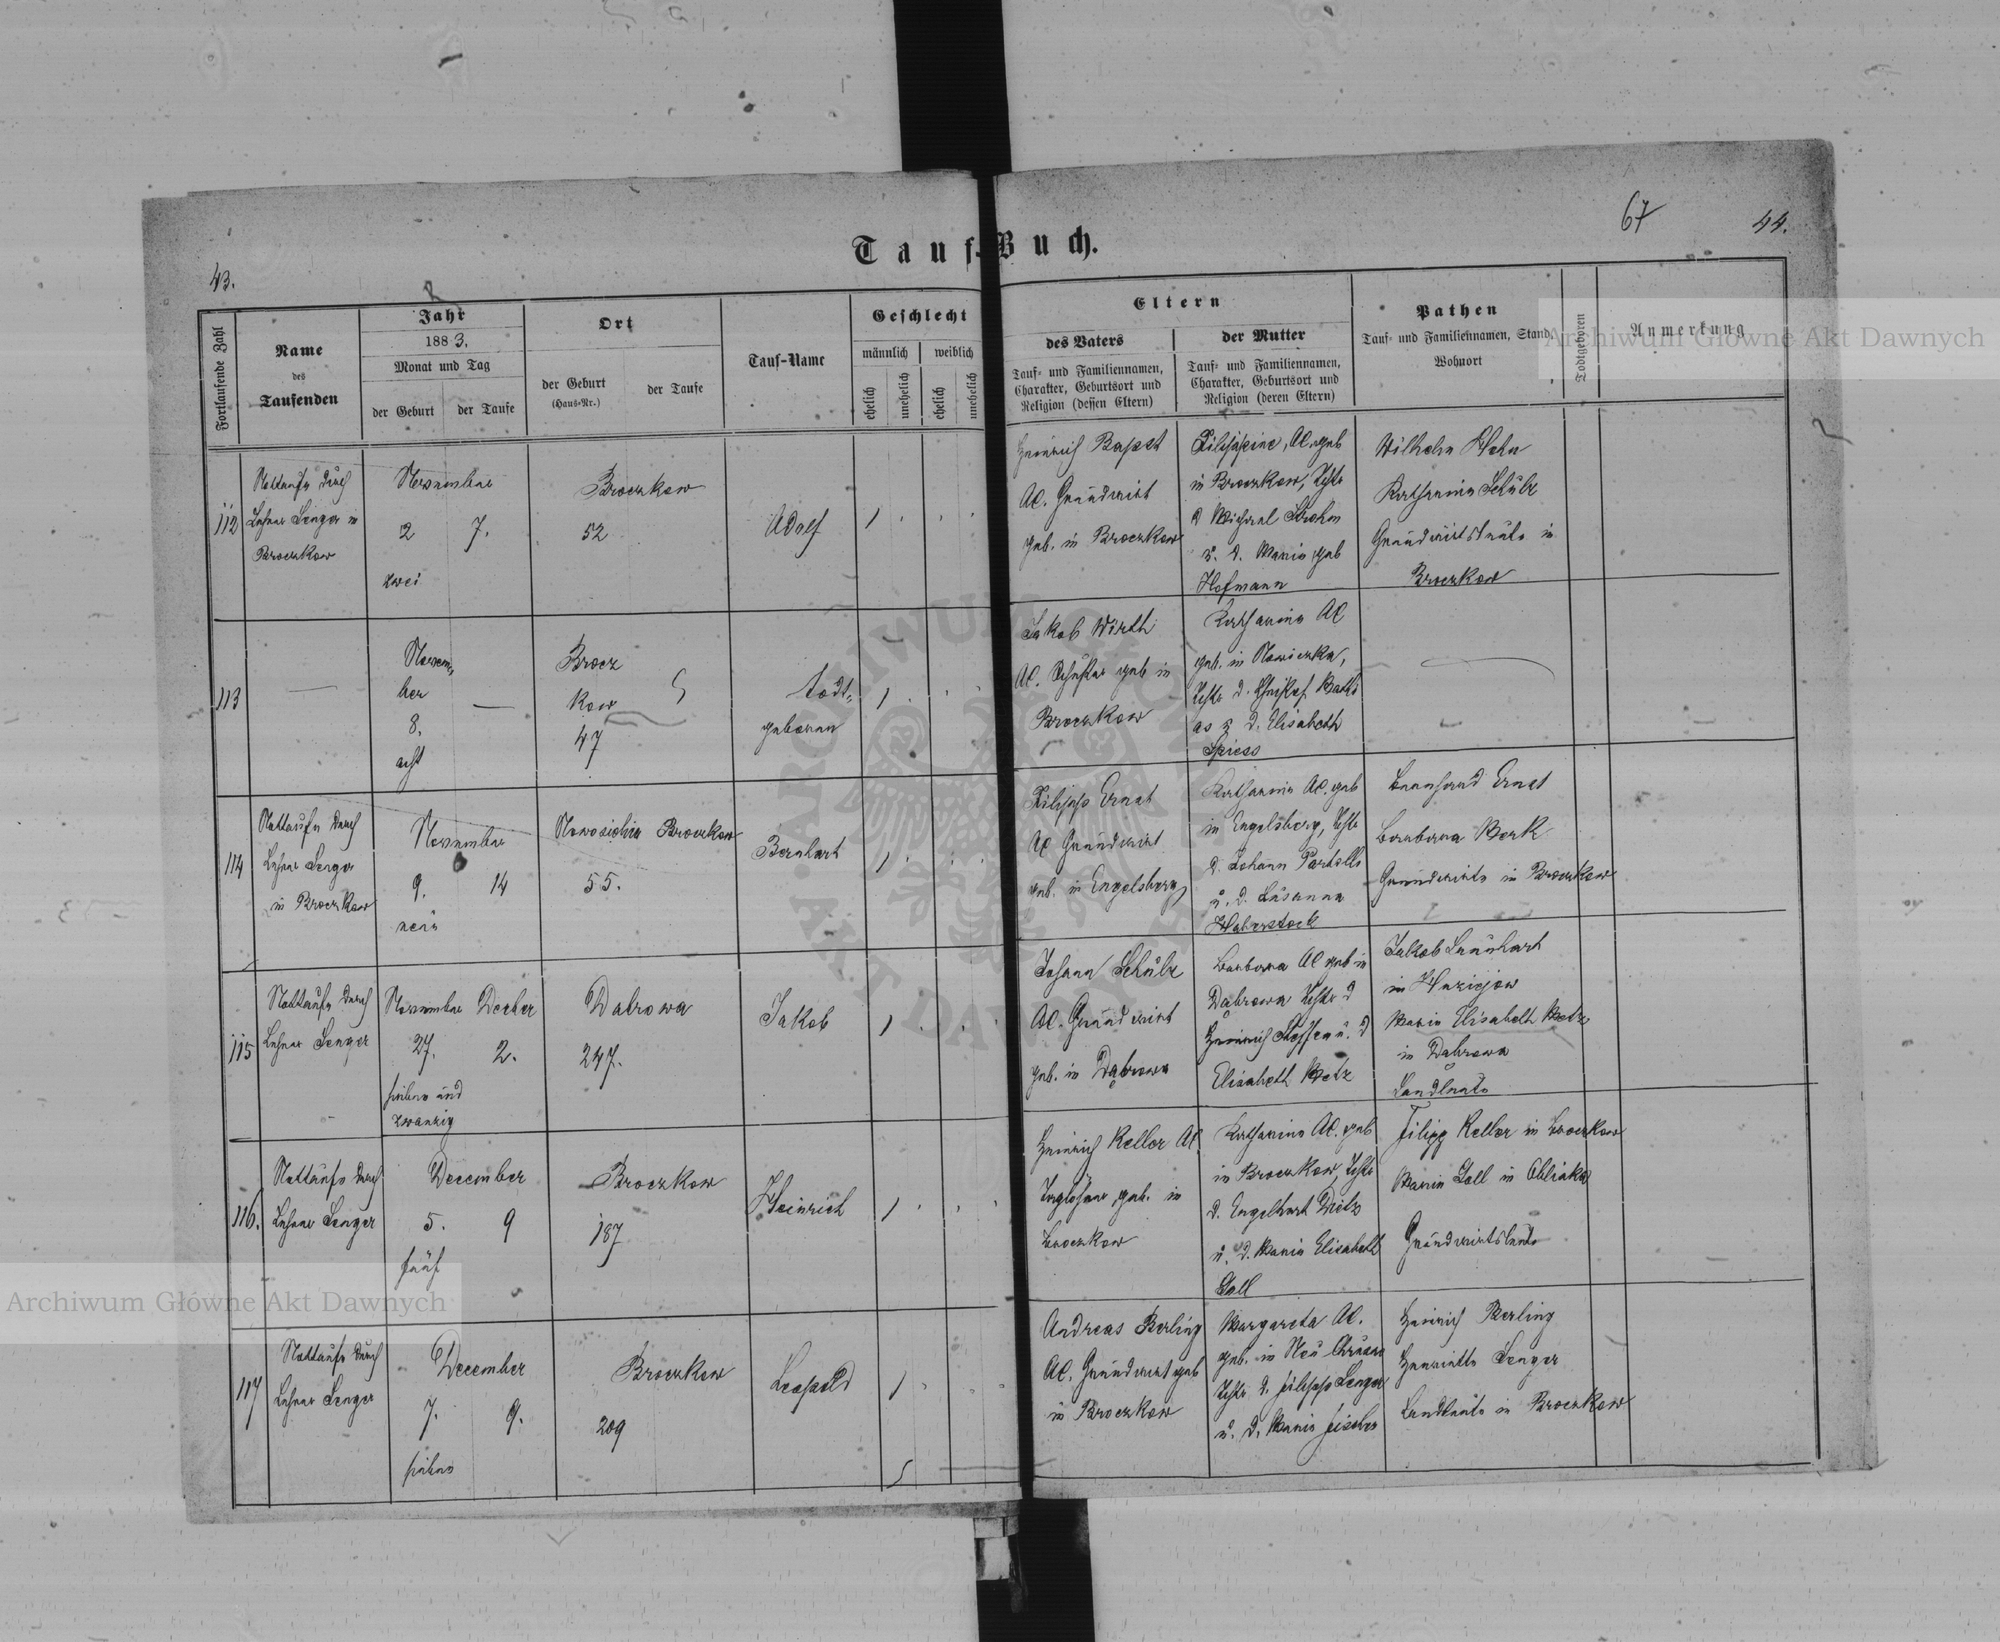 67
44.
43.
Tauf-Buch.
Fortlaufende Zahl
Name
des
Taufenden
Jahr
1883.
Monat und Tag
der Geburt
der Taufe
Ort
der Geburt
(Haus-Nr.)
der Taufe
Tauf-Name
Geschlecht
männlich
weiblich
ehelich
unehelich
ehelich
unehelich
Eltern
des Vaters
Tauf- und Familiennamen,
Charakter, Geburtsort und
Religion (dessen Eltern)
der Mutter
Tauf- und Familiennamen,
Charakter, Geburtsort und
Religion (deren Eltern)
Pathen
Tauf- und Familiennamen, Stand,
Wohnort
Todtgeboren
Anmerkung
112
Nottaufe durch
Lehrer Senger in
Broczkow
November
2 7.
zwei
Broczkow
52
Adolf
Heinrich Bapst
AC. Grundwirt
geb. in Broczkow
Filippine, AC. geb
in Broczkow, Tchtr
d Michael
u. d. Maria geb
Hofmann
Wilhelm Hehn
Katharina Schülz
Grundwirtsleute in
Broczkow
113
Novem-
ber
8.
acht
Brocz
kow
47
todt-
geboren
Jakob Wirth
AC. geb in
Broczkow
Katharina AC
geb. in Nowiczka,
Tchtr d.
as u d. Elisabeth
Spiess
114
Nottaufe durch
Lehrer Senger
in Broczkow
November
9. 14
neun
Nowosielica Broczkow
55.
Bernhart
Filipp Ernst
AC Grundwirt
geb. in Engelsberg
Katharina AC. geb
in Engelsberg, Tchtr
d. Johann
u. d. Susanna
Haberstock
Bernhard Ernst
Barbara Berk
Grundwirte in Broczkow
115
Nottaufe durch
Lehrer Senger
November Decber
27. 2.
sieben und
zwanzig
Dabrowa
247.
Jakob
Johann Schülz
AC. Grundwirt
geb. in Dąbrowa
Barbara AC geb in
Dąbrowa Tchtr d
Heinrich Steffen u. d
Elisabeth Metz
Jakob Leunhart
in
Maria Elisabeth Metz
in Dąbrowa
Landleute
116.
Nottaufe durch
Lehrer Senger
December
5. 9
fünf
Broczkow
187
Heinrich
Heinrich Keller AC
Taglöhner geb. in
Broczkow
Katharina AC. geb
in Broczkow, Tchtr
d. Engelhart Dietz
u. d. Maria Elisabeth
Goll
Filipp Keller in Broczkow
Maria Goll in Obliska
Grundwirtsleute
117
Nottaufe durch
Lehrer Senger
December
7. 9.
sieben
Broczkow
209
Leopold
Andreas Berling
AC. Grundwirt geb
in Broczkow
Margareta AC.
geb. in Neu
Tchtr d. Filipp Senger
u. d. Maria Fischer
Heinrich Berling
Henriette Senger
Landleute in Broczkow
Archiwum Główne Akt Dawnych
Archiwum Główne Akt Dawnych